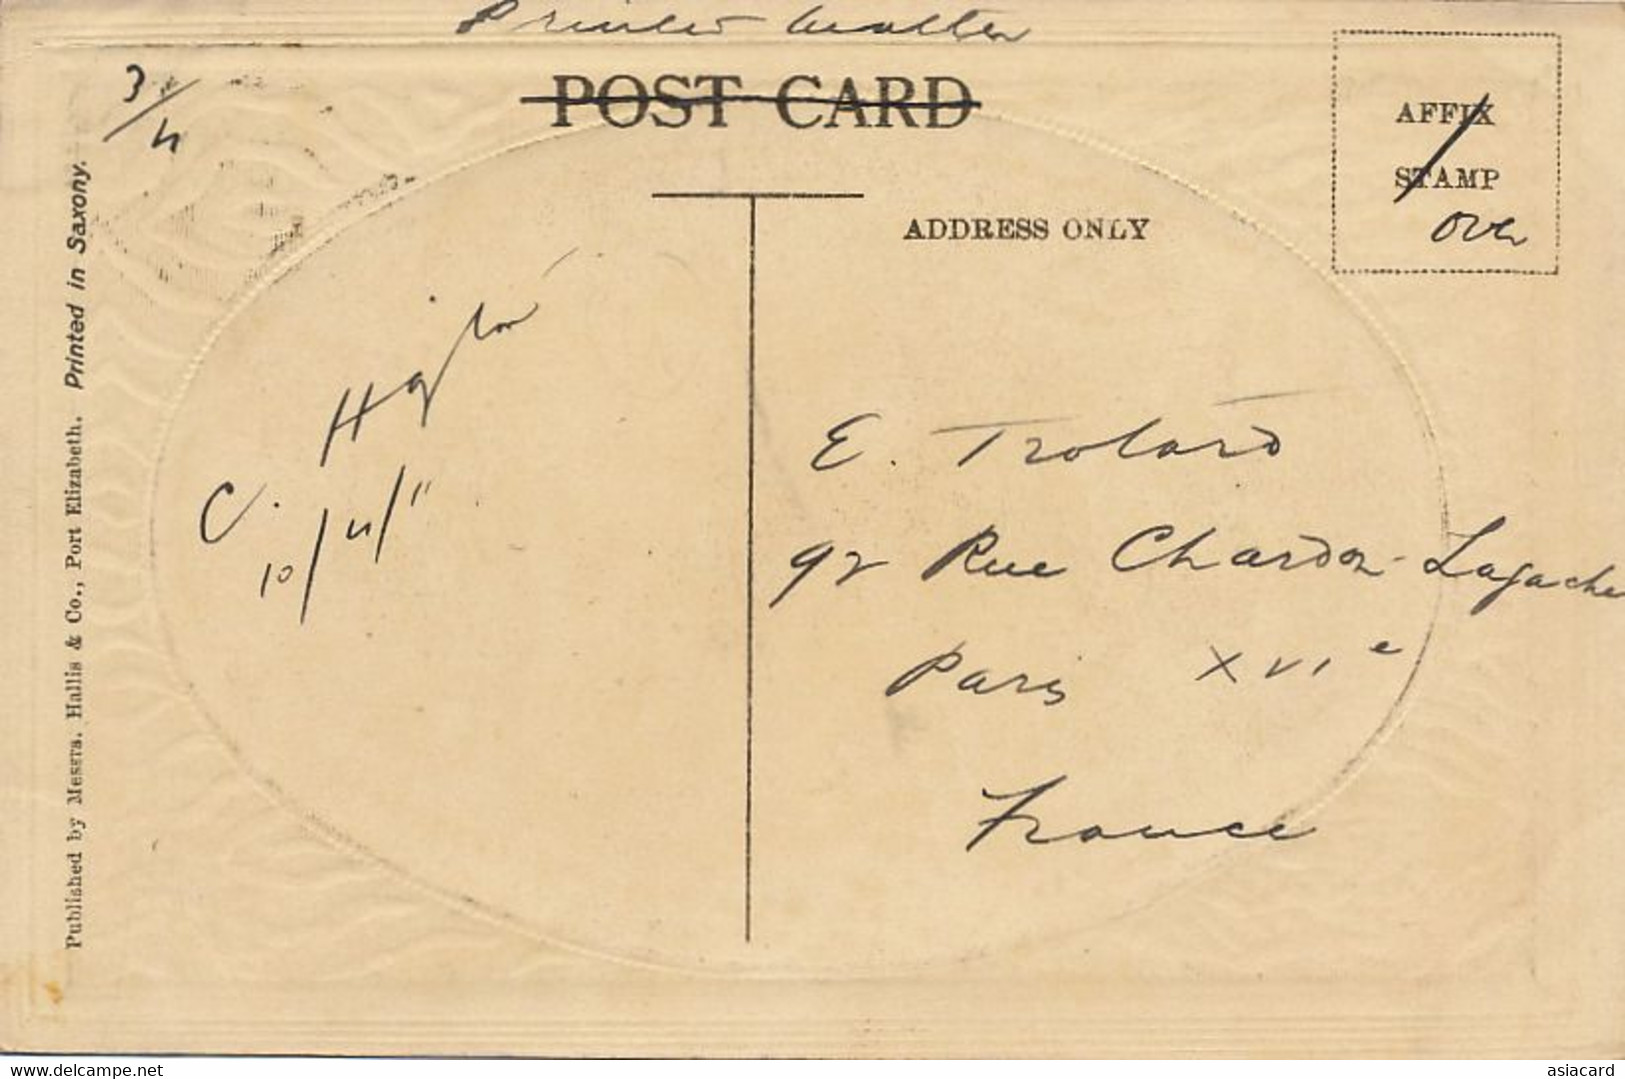 Printed Matter
POST CARD
3/4
AFFIX
STAMP
over
ADDRESS ONLY
Published by Messrs. Hallis & Co., Port Elizabeth. Printed in Saxony.
C.
10/4/11
E. Trotard
92 Rue Chardon-Lagache
Paris XVIe
France
www.delcampe.net
asiacard